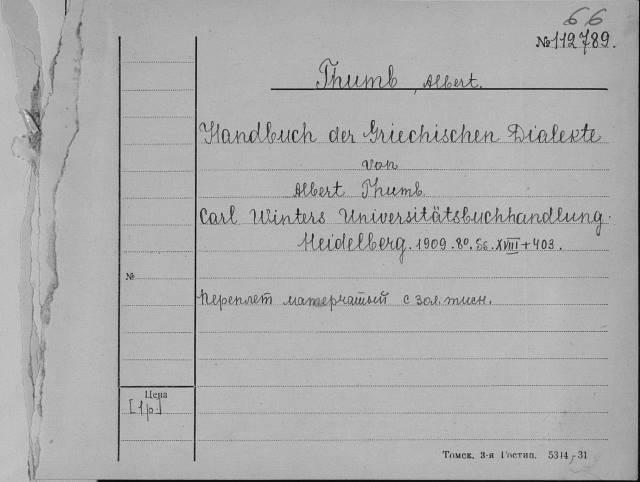 66
№112789.
Thumb, Albert.
Handbuch der Griechischen Dialekte
von
Albert Thumb.
Carl Winters Universitätsbuchhandlung.
Heidelberg. 1909. 8o. Ss. XVIII + 403.
№
Переплет матерчатый с зол. тисн.
Цена
[1р.]
Томск. 3-я Гостип. 5314-31